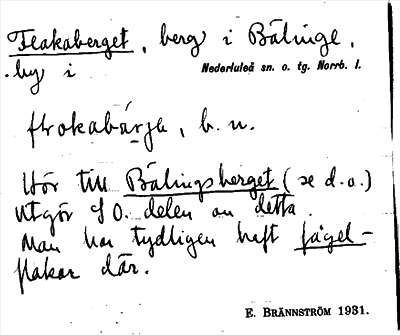 Flakaberget, berg i Bälinge,
by i
Nederluleå sn. o. tg. Norrb. l.
flrokabárja, b. n.
Hör till Bälingsberget (se d.o.)
Utgör SO. delen av detta.
Man har tydligen haft fågel-
flakar där.
E. BRÄNNSTRÖM 1931.